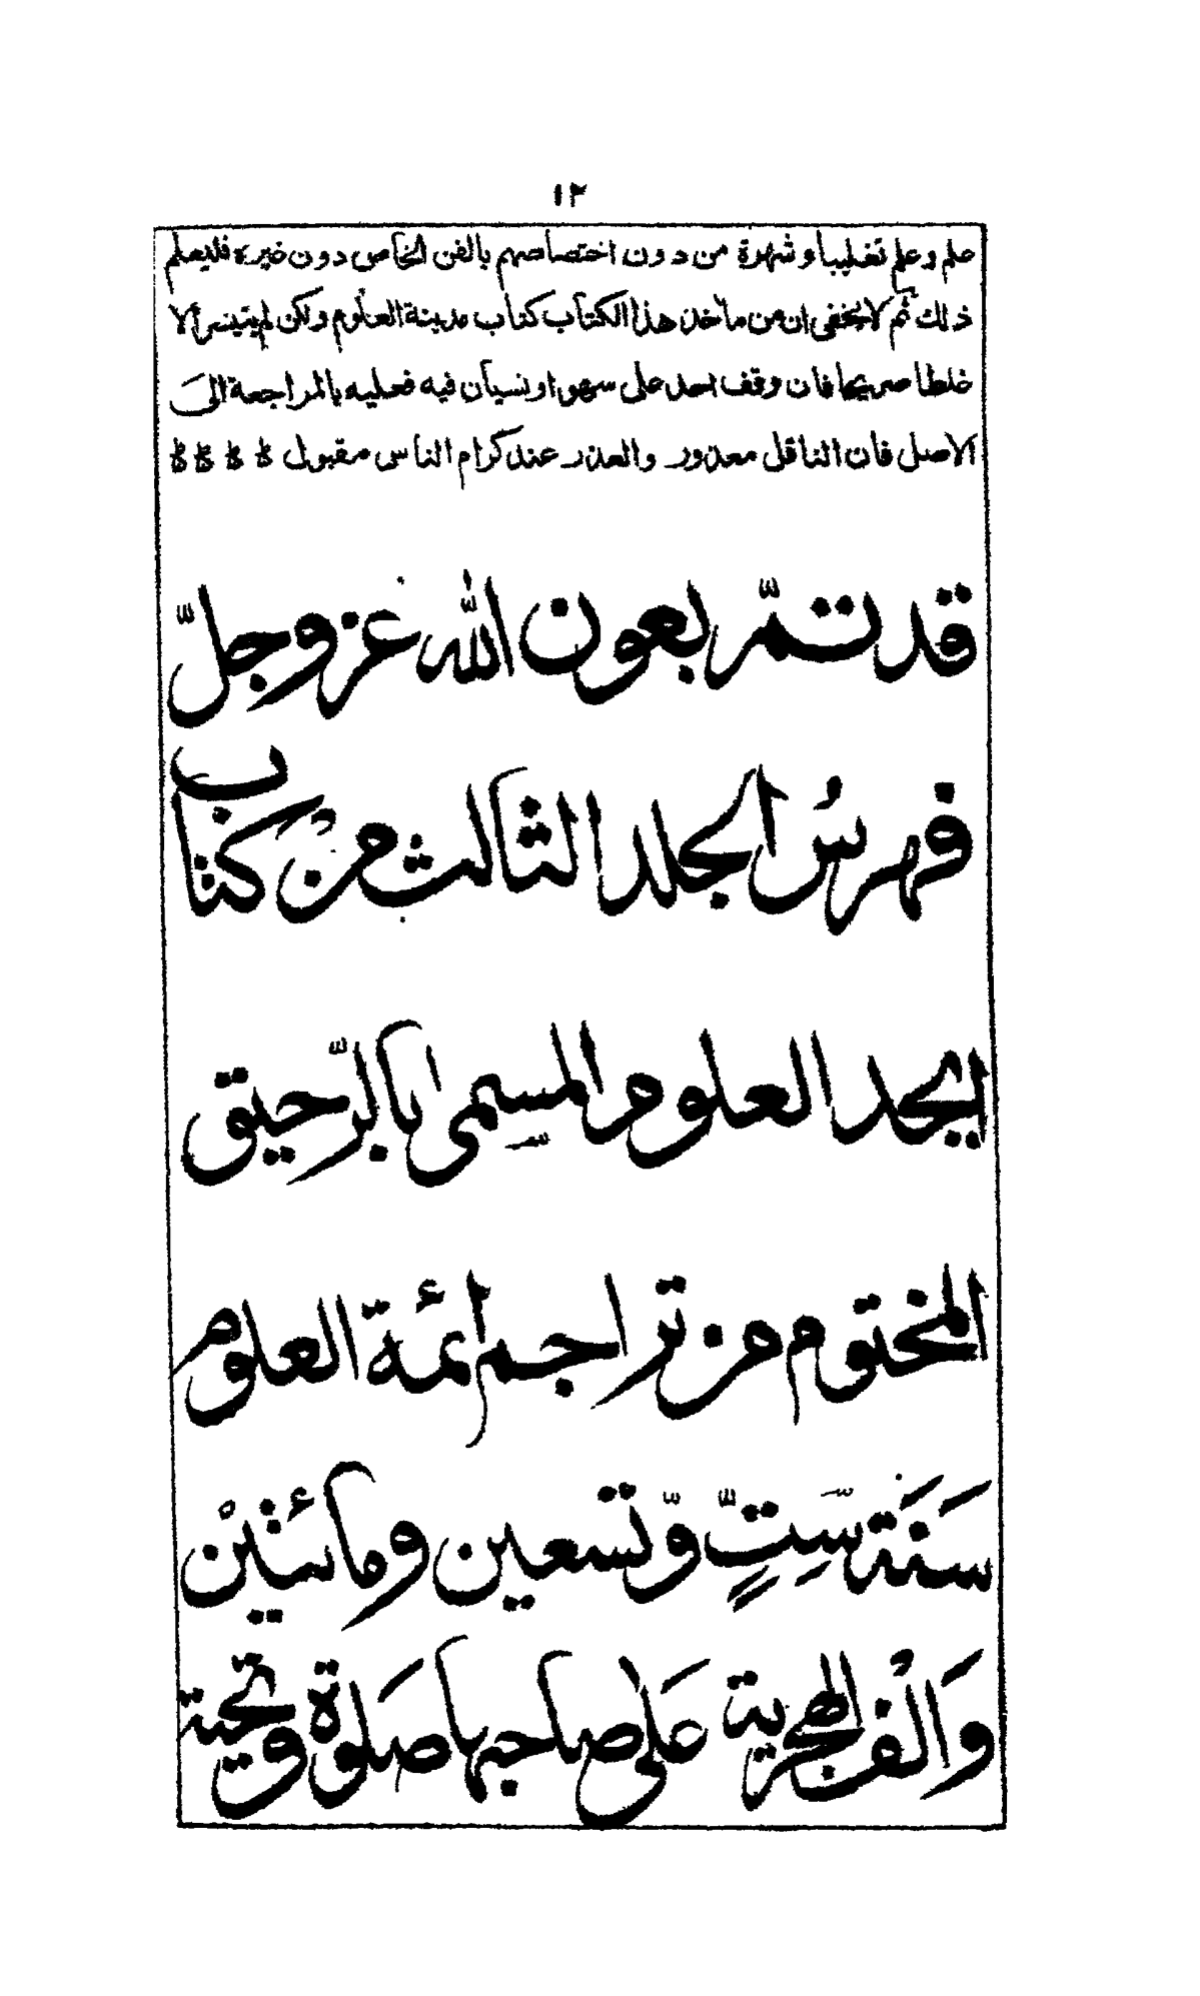 ١٢
علم وعلم تغليبا وشهرة من دون اختصاصهم بالفن الخاص دون غيره فليعلم
ذلك ثم لا يخفى ان من مآخذ هذا الكتاب كتاب مدينة العلوم ولكن لم يتيسر الا
غلطا صريحا فان وقف احد على سهو او نسيان فيه فعليه بالمراجعة الى
الاصل فان الناقل معذور والعذر عند كرام الناس مقبول
قد تمّ بعون اللّه عز وجلّ
فهرسُ الجلد الثالث من كتاب
ابجد العلوم المسمى بالرّحيق
المختوم من تراجم ائمة العلوم
سَنَة سِتٍّ وّتسعين ومائتَيْن
وَالْف الهجرية عَلى صاحبها صَلوة وتحية